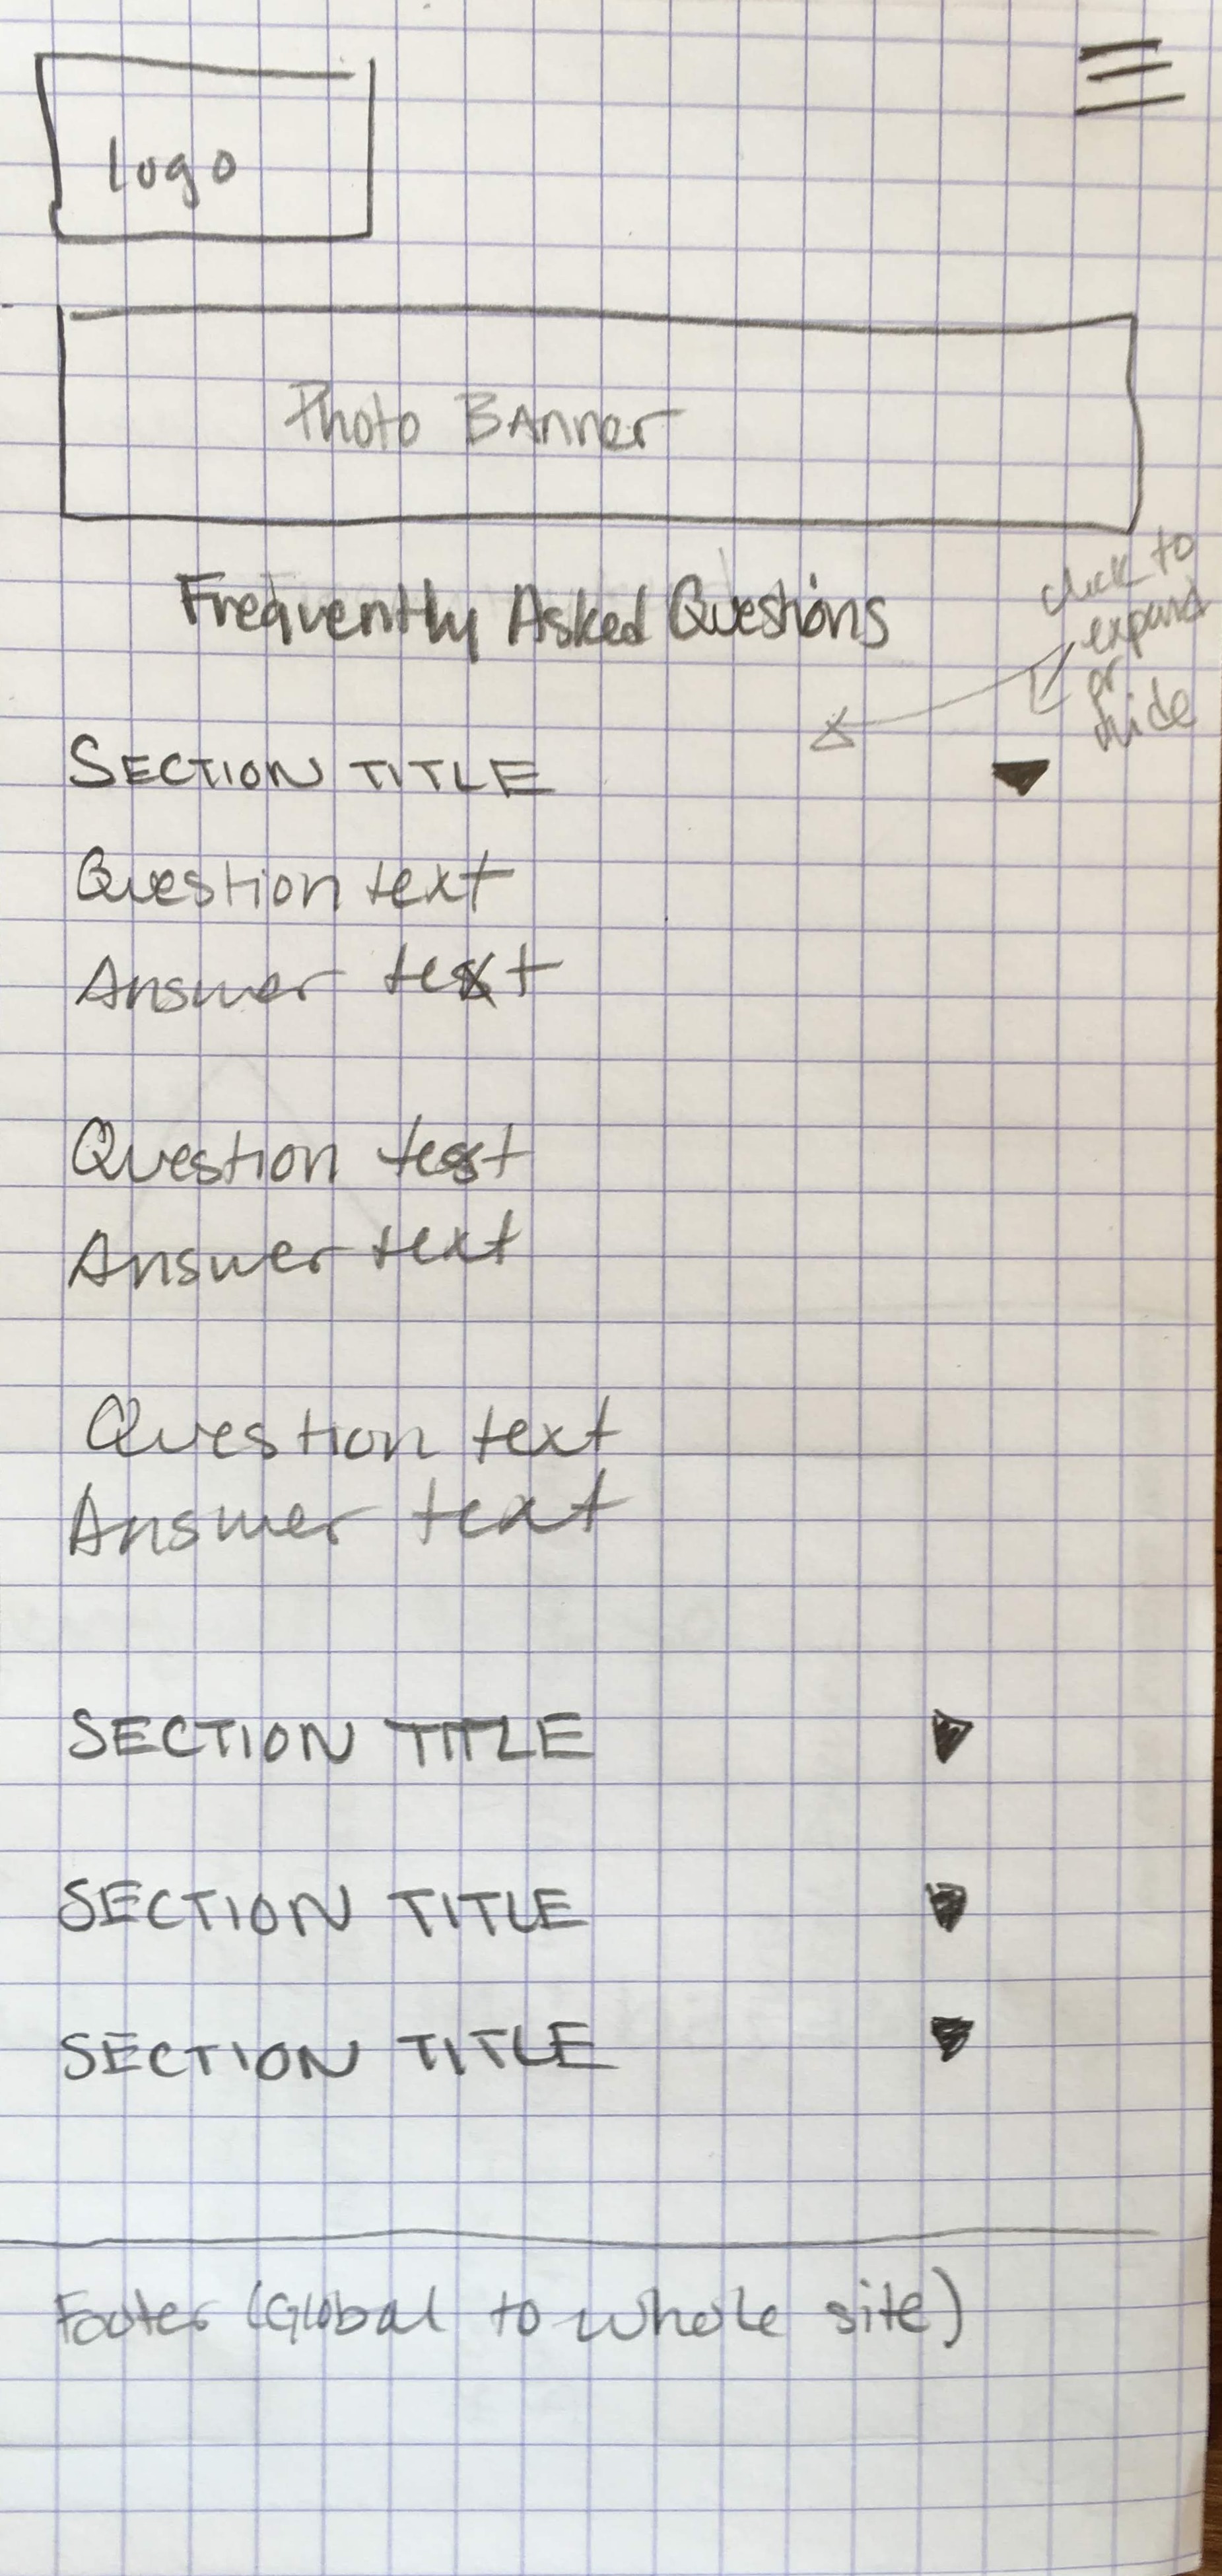 logo
Photo Banner
Frequently Asked Questions
click to
expand
or
hide
SECTION TITLE
Question text
Answer text
Question text
Answer text
Question text
Answer text
SECTION TITLE
SECTION TITLE
SECTION TITLE
Footer (Global to whole site)